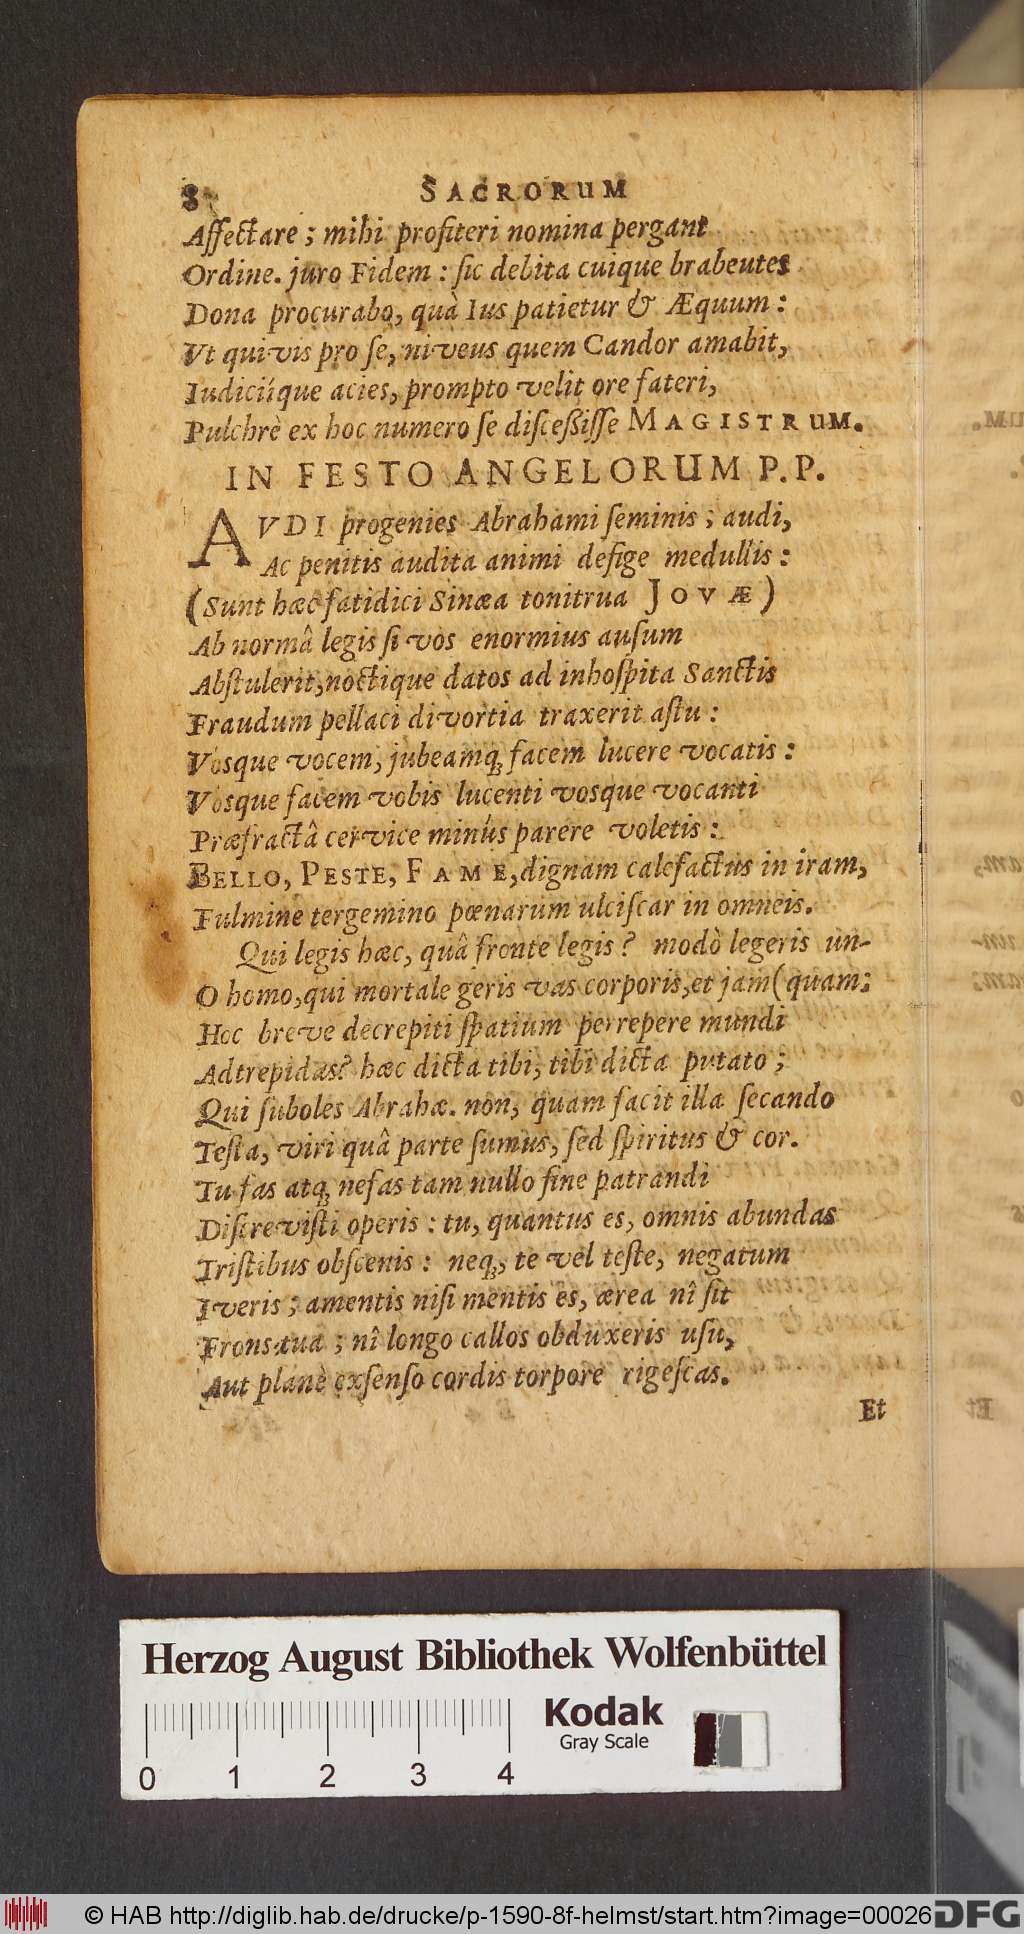 8 SACRORUM
Affectare ; mihi profiteri nomina pergant
Ordine. juro Fidem : ſic debita cuique brabeutes
Dona procurabo, quà Ius patietur & Æquum :
Ut quivis pro ſe, niveus quem Candor amabit,
Iudiciíque acies, prompto velit ore fateri,
Pulchrè ex hoc numero ſe diſceßiſſe MAGISTRUM.
IN FESTO ANGELORUM P.P.
AVDI progenies Abrahami ſeminis ; audi,
Ac penitis audita animi defige medullis :
(Sunt hæc fatidici Sinæa tonitrua JOVÆ)
Ab normâ legis ſi vos enormius auſum
Abſtulerit, noctique datos ad inhoſpita Sanctis
Fraudum pellaci divortia traxerit aſtu :
Vosque vocem, jubeamq́; facem lucere vocatis :
Vosque facem vobis lucenti vosque vocanti
Præfractâ cervice minús parere voletis :
BELLO, PESTE, FAME, dignam calefactus in iram,
Fulmine tergemino pœnarum ulciſcar in omneis.
Qui legis hæc, quâ fronte legis? modò legeris un-
O homo, qui mortale geris vas corporis, et jam (quam;
Hoc breve decrepiti ſpatium perrepere mundi
Adtrepidas? hæc dicta tibi, tibi dicta putato ;
Qui ſuboles Abrahæ. non, quam facit illa ſecando
Teſta, viri quâ parte ſumus, ſed ſpiritus & cor.
Tu fas atq; nefas tam nullo fine patrandi
Diſcreviſti operis : tu, quantus es, omnis abundas
Triſtibus obſcenis : neq;, te vel teſte, negatum
Iveris ; amentis niſi mentis es, ærea nî ſit
Frons tua ; nî longo callos obduxeris uſu,
Aut planè exſenſo cordis torpore rigeſcas.
Et
Herzog August Bibliothek Wolfenbüttel
Kodak
Gray Scale
0 1 2 3 4
© HAB http://diglib.hab.de/drucke/p-1590-8f-helmst/start.htm?image=00026
DFG